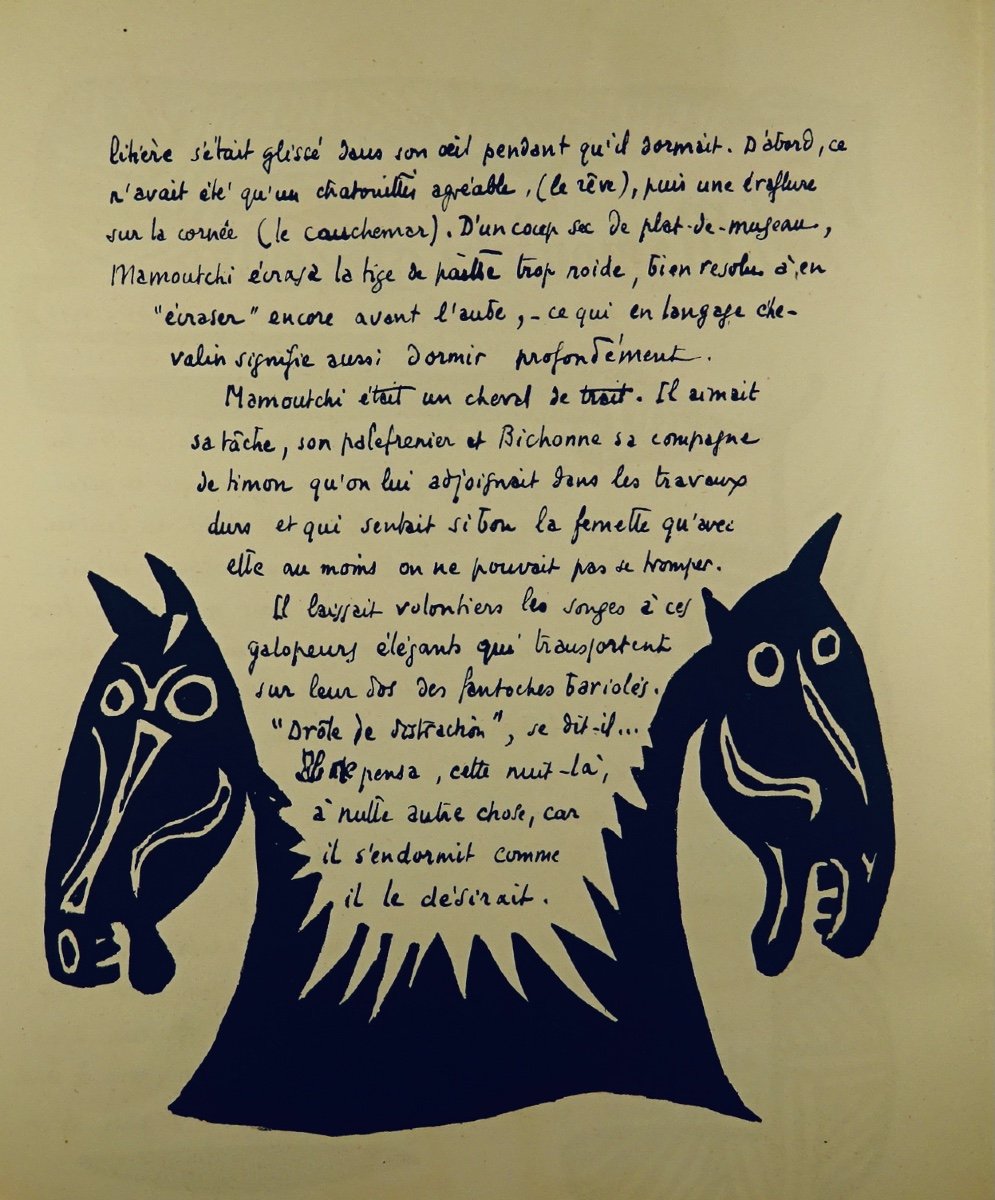 litière s'était glissé dans son œil pendant qu'il dormait. D'abord, ce
n'avait été qu'un chatouillis agréable, (le rêve), puis une éraflure
sur la cornée (le cauchemar). D'un coup sec de plat-de-museau,
Mamoutchi écrasa la tige de paille trop roide, bien resolu à en
"écraser" encore avant l'aube, - ce qui en langage che-
valin signifie aussi dormir profondément.
Mamoutchi était un cheval de trait. Il aimait
sa tâche, son palefrenier et Bichonne sa compagne
de timon qu'on lui adjoignait dans les travaux
durs et qui sentait si bon la femelle qu'avec
elle au moins on ne pouvait pas se tromper.
Il laissait volontiers les songes à ces
galopeurs élégants qui transportent
sur leur dos des fantoches bariolés.
"Drôle de distraction", se dit-il...
pensa, cette nuit-là,
à nulle autre chose, car
il s'endormit comme
il le désirait.